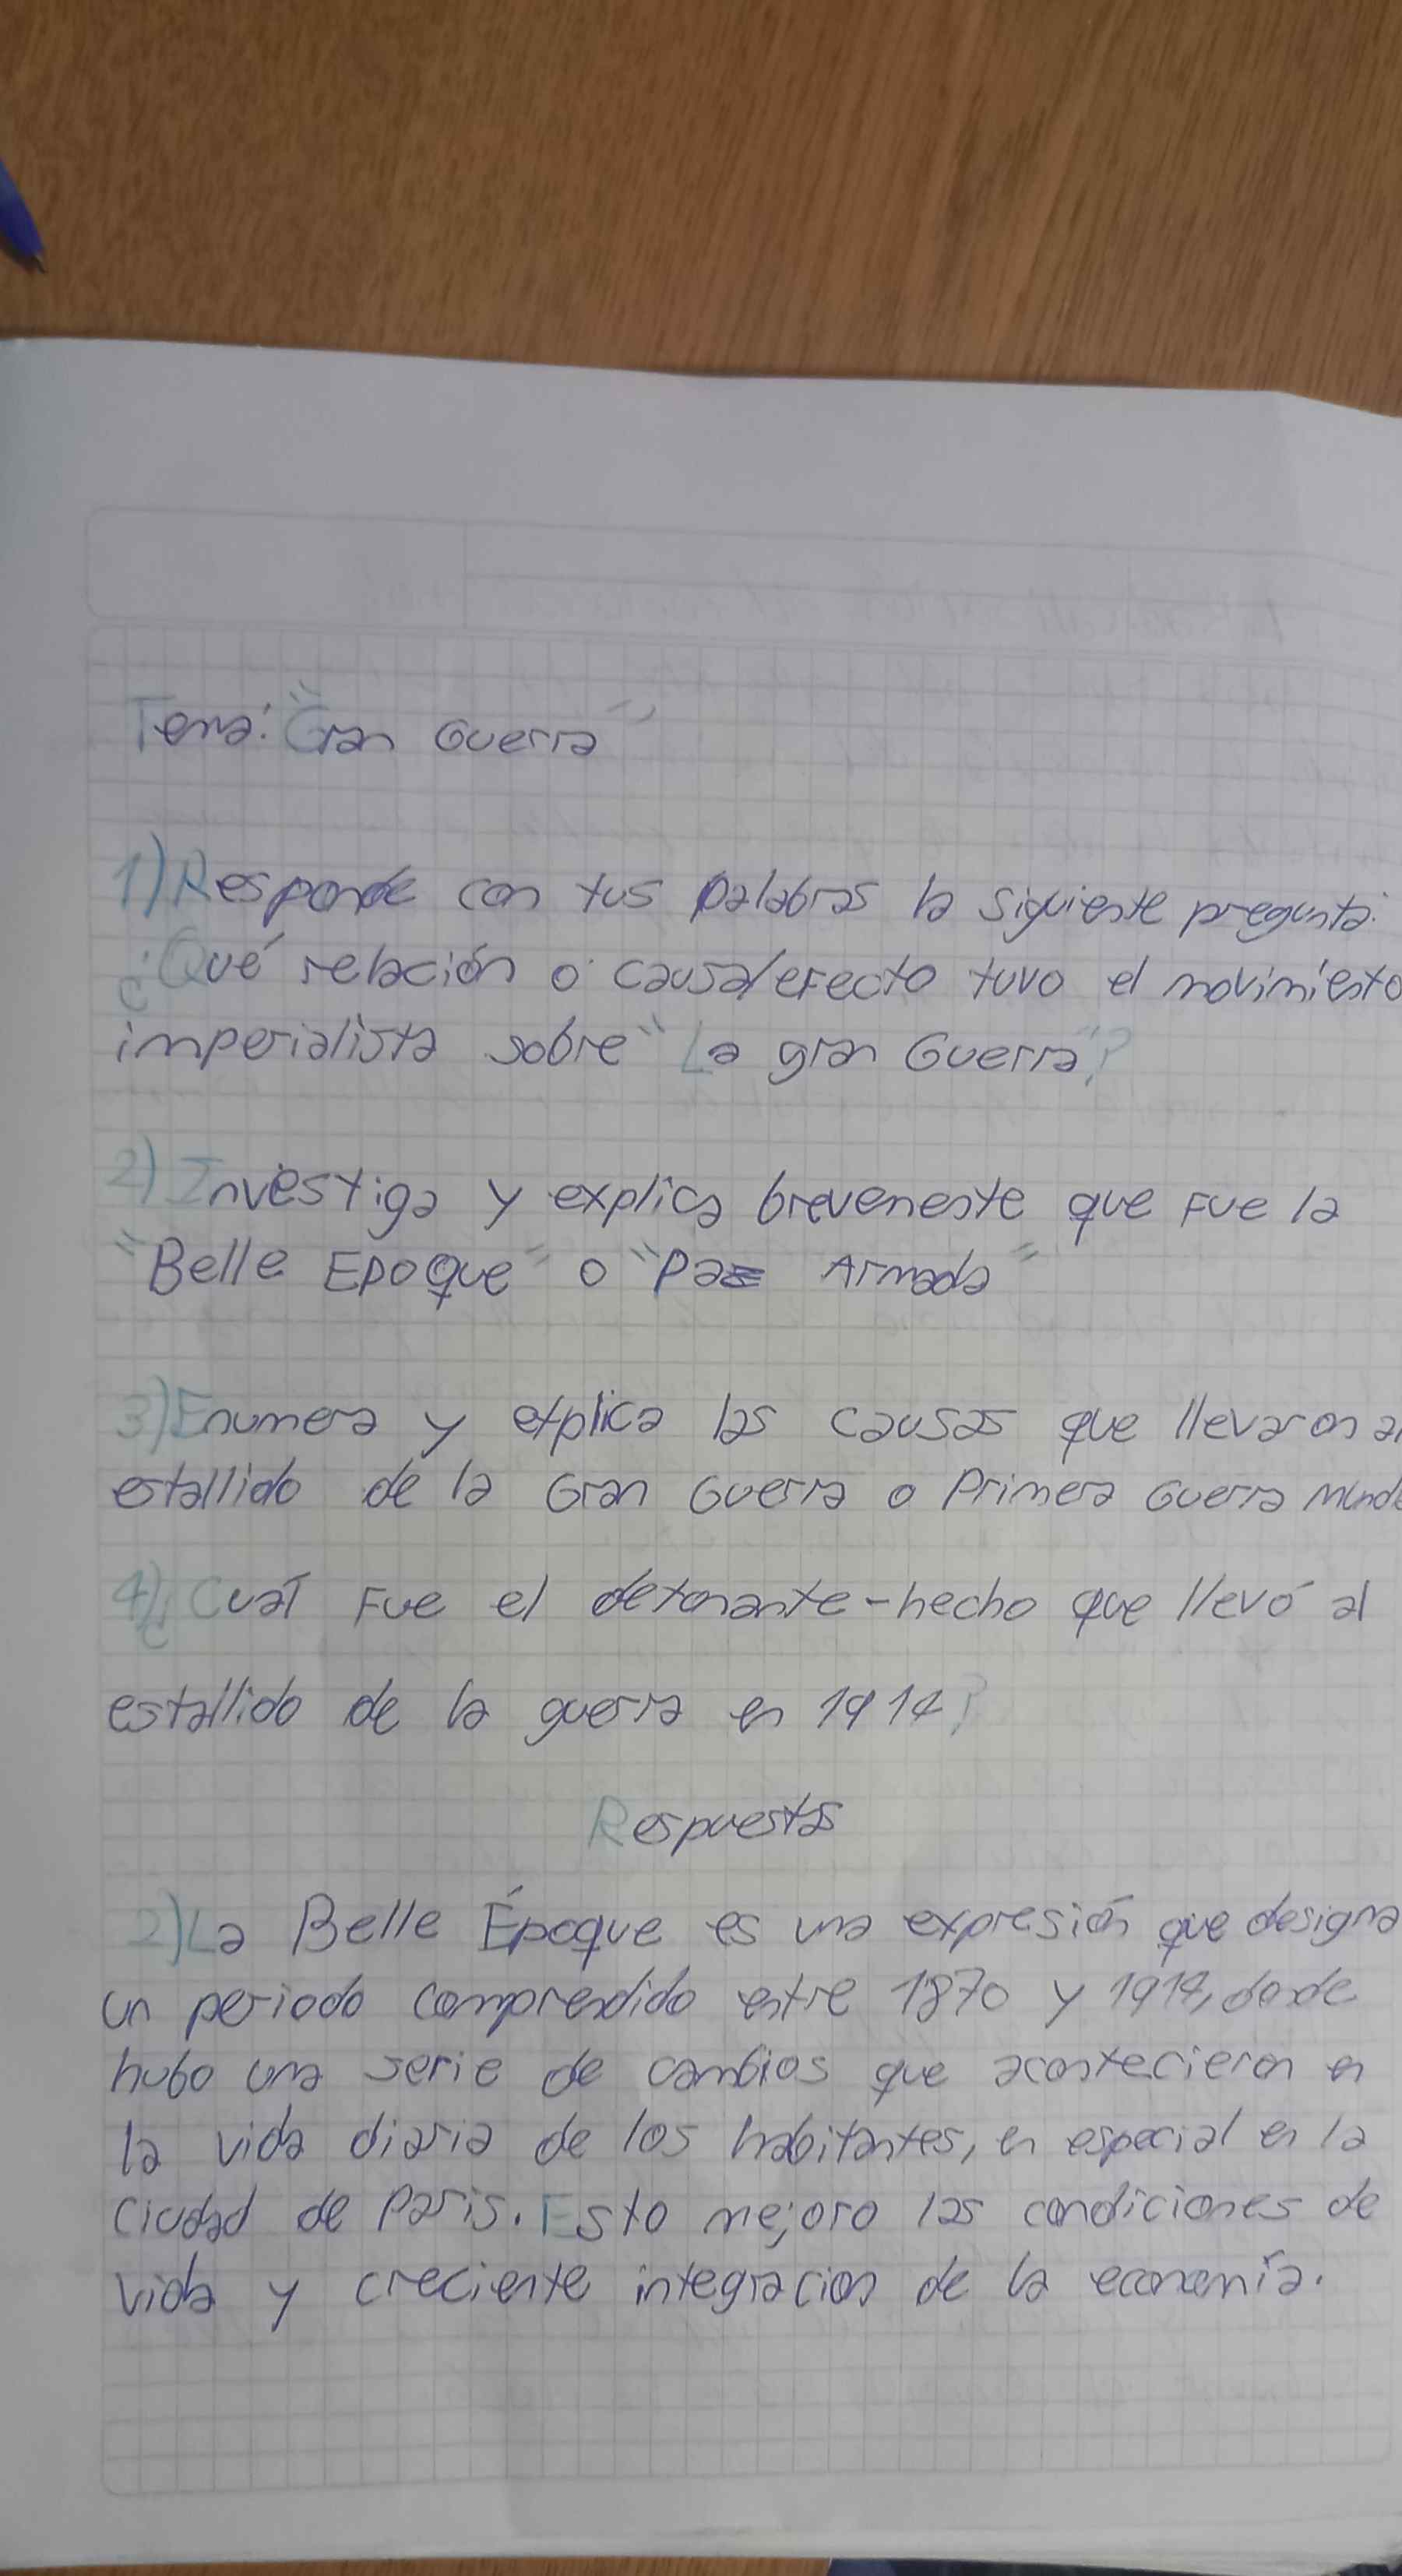 Tema: "Gran Guerra"
1) Responde con tus palabras la siguiente pregunta:
¿Qué relación o causa/efecto tuvo el movimiento
imperialista sobre "La gran Guerra"?
2) Investiga y explica brevemente que fue la
"Belle Epoque" o "Paz Armada"
3) Enumera y explica las causas que llevaron al
estallido de la Gran Guerra o Primera Guerra Mund
4) ¿Cuál fue el detonante-hecho que llevó al
estallido de la guerra en 1914?
Respuestas
2) La Belle Époque es una expresión que designa
un periodo comprendido entre 1870 y 1914, donde
hubo una serie de cambios que acontecieron en
la vida diaria de los habitantes, en especial en la
ciudad de Paris. Esto mejoro las condiciones de
vida y creciente integracion de la economía.